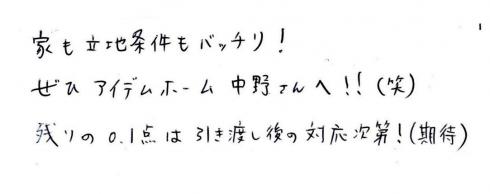 家も立地条件もバッチリ!
ぜひ アイデムホーム 中野さんへ!!(笑)
残りの 0.1点は 引き渡し後の 対応次第!(期待)